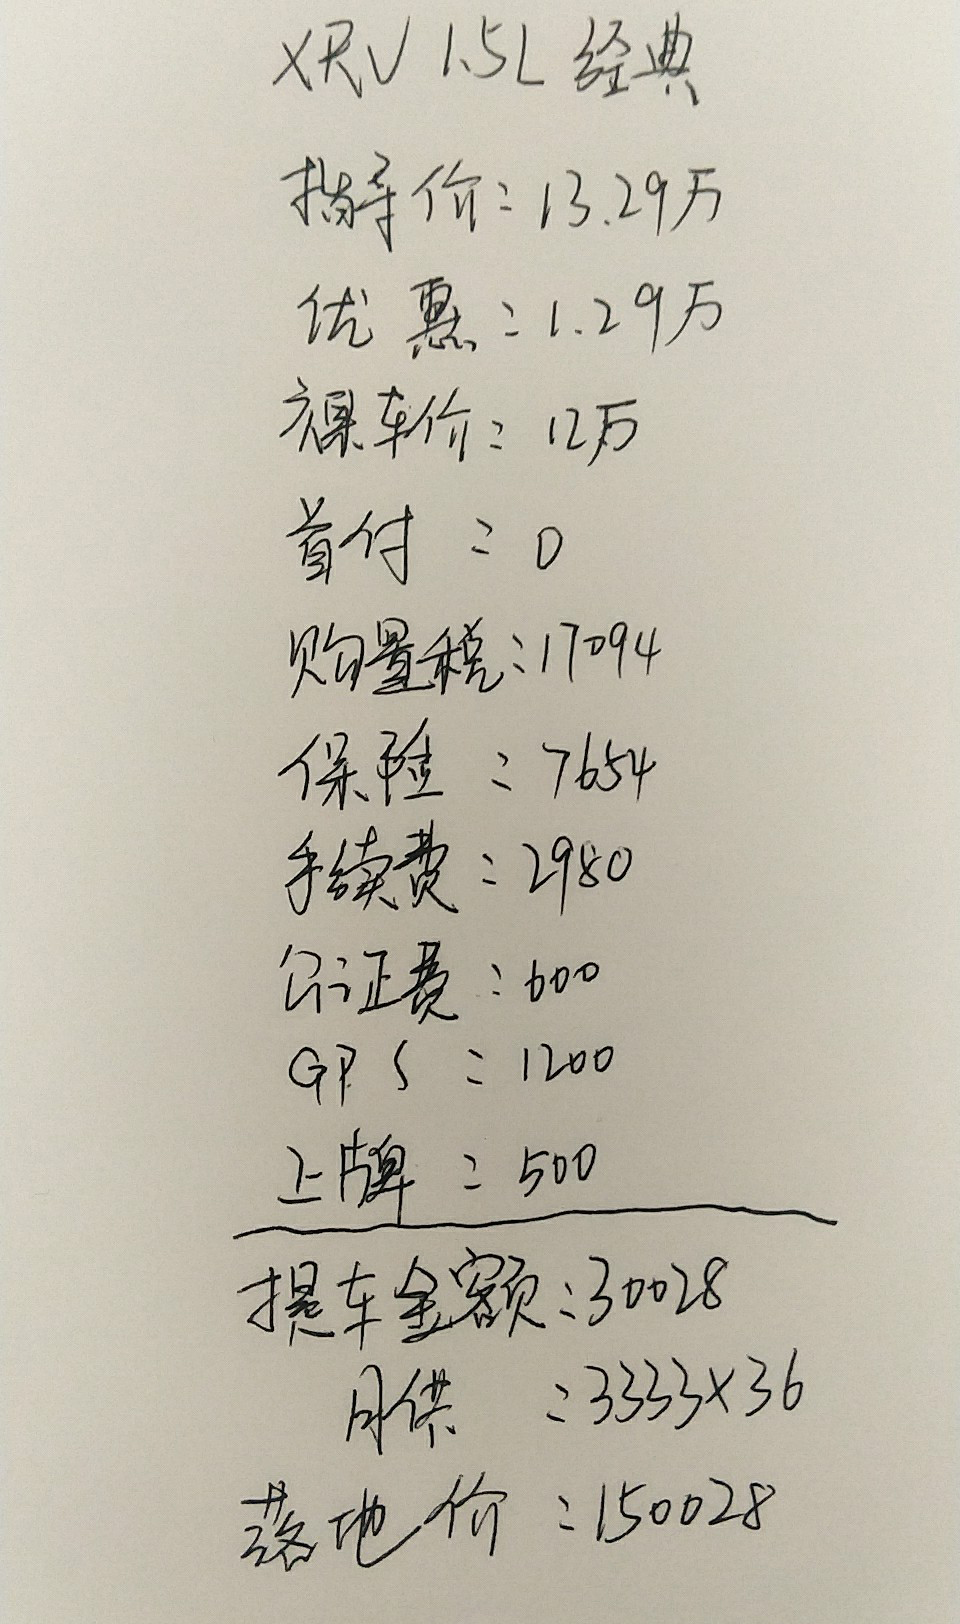 XRV 1.5L 经典
指导价：13.29万
优惠：1.29万
裸车价：12万
首付：0
购置税：17094
保险：7654
手续费：2980
公证费：600
GPS：1200
上牌：500
提车金额：30028
月供：3333×36
落地价：150028